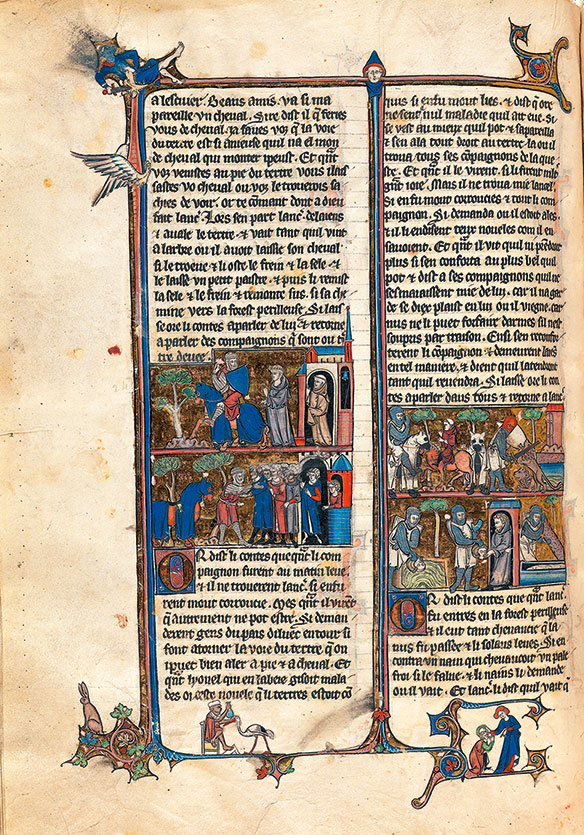 alescuier. Beaus amis. va si ma
pareille vn cheual. Sire dist il q̃ feries
vous de cheual. ia saues voꝯ q̃ la voie
du tertre est si anieuse quil na el mon
de cheual qui monter i peust. Et qñt
voꝯ venistes au pie du tertre vous i lais
sastes vo cheual ou voꝯ le trouerois sa
ches de voir. or te cōmant dont a dieu
fait lanc̾. Lors sen part lanc̾. delaiens
⁊ auale le tertre. ⁊ vait tant quil vint
a larbre ou il auoit laisse son cheual.
si le troeue ⁊ li oste le frein ⁊ la sele ⁊
le laisse vn petit paistre. ⁊ puis li remist
la sele ⁊ le frein ⁊ remonte sus. si sa che
mine vers la forest perilleuse. Si lais
se ore li contes a parler de lui ⁊ retorne
a parler des compaignons q̃ sont ou t̾
tre deuee.
OR dist li contes que qñt li com
paignon furent au matin leue.
⁊ il ne trouerent lanc̾. si enfu
rent mout corroucie. Mes qñt il virēt
q̃ autrement ne pot estre. Si deman
derent gens du pais diluec entour si
font atorner la voie du tertre q̃ on
i puet bien aler a pie ⁊ a cheual. Et
qñt lyonel qui en labeie gisoit mala
des oi ceste nouele q̃ li tertres estoit cō
nuis si enfu mout lies. ⁊ dist q̃ ore
ne sent nuil maladie quil ait eue. Si
se vest au mieux quil pot ⁊ sapareilla
⁊ sen ala tout droit au tertre. la ou il
troua tous ses cōpaignons de la que
ste. Et qñt il le virent. si li firent mlt
grñt ioie. Mais il ne troua mie lanc̾.
Si en fu mout corroucies ⁊ tout li com
paignon. Si demanda ou il estoit ales
⁊ il len disent teux noueles com il en
sauoient. Et qñt il vit quil ni prēdroit
plus si sen conforta au plus bel quil
pot ⁊ dist a ses compaignons quil ne
sesmaiaissent mie de lui. car il na gar
de se dieu plaist en lieu ou il viegne. car
nus ne li puet forfaire darmes sil nest
souspris par traison. Ensi sen reconfor
terent li cōpaignon ⁊ demeurent laiēs
en tel maniere. ⁊ dient quil latendront
tant quil reuendra. Si laisse ore li con
tes a parler daus tous ⁊ retorne a lanc̾.
OR dist li contes que qñt lanc̾.
fu entres en la forest perilleuse
⁊ il eut tant cheuaucie q̃ la
nuis fu passee ⁊ li solaus leues. Si en
contra vn nain qui cheuaucoit vn pale
froi. si le salue. ⁊ li nains li demande
ou il vait. Et lanc̾. li dist quil vait q̄